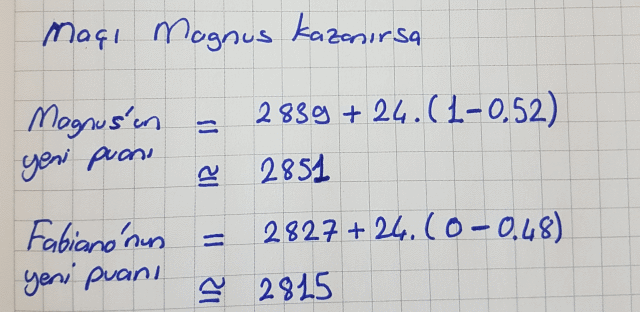 Maçı Magnus kazanırsa
Magnus'un = 2839 + 24.(1-0.52)
yeni puanı
≅ 2851
Fabiano'nun = 2827 + 24.(0-0.48)
yeni puanı
≅ 2815